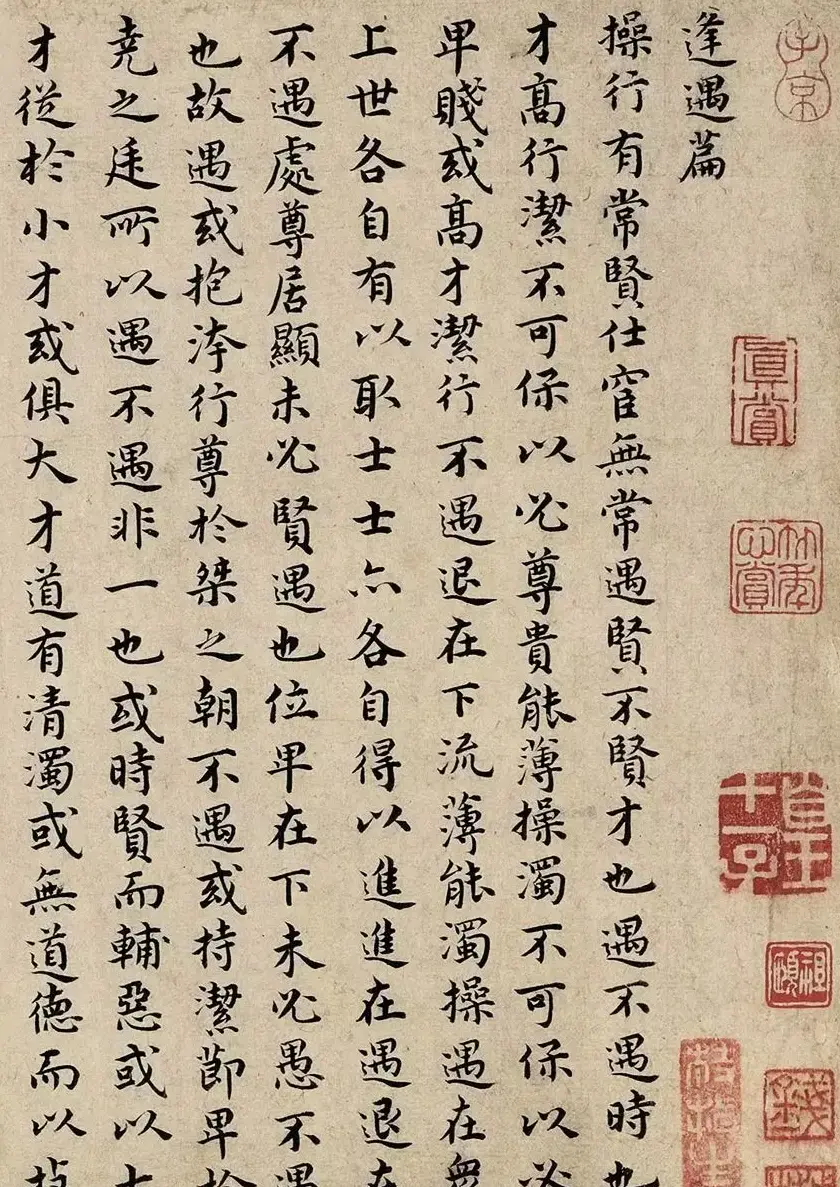 子京
真賞
祖頤
錢
逢遇篇
操行有常賢仕宦無常遇賢不賢才也遇不遇時也
才高行潔不可保以必尊貴能薄操濁不可保以必
卑賤或高才潔行不遇退在下流薄能濁操遇在衆
上世各自有以取士士亦各自得以進進在遇退在
不遇處尊居顯未必賢遇也位卑在下未必愚不遇
也故遇或抱洿行尊於桀之朝不遇或持潔節卑於
堯之廷所以遇不遇非一也或時賢而輔惡或以大
才從於小才或俱大才道有清濁或無道德而以